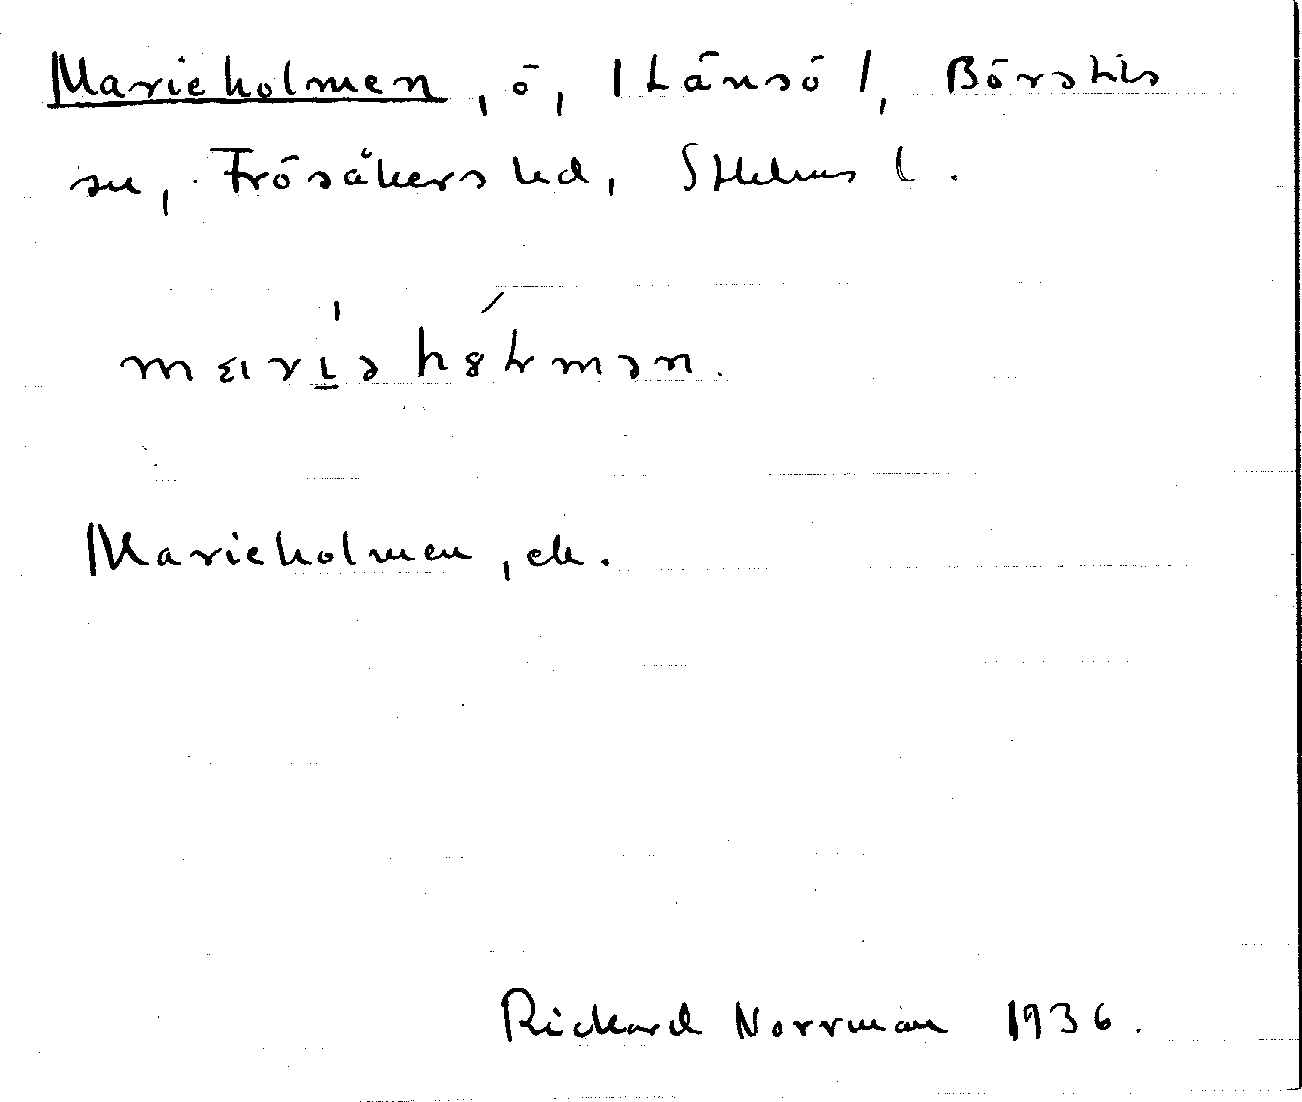 Marieholmen, ö, /Länsö/, Börstils
sn, Frösåkers hd, Sthlms l.
Marieholmen, ek.
Rickard Norrman 1936.